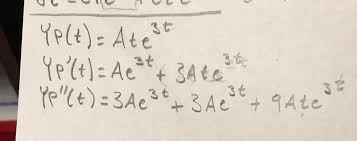 Yp(t) = Ate^3t
Yp'(t) = Ae^3t + 3Ate^3t
Yp''(t) = 3Ae^3t + 3Ae^3t + 9Ate^3t